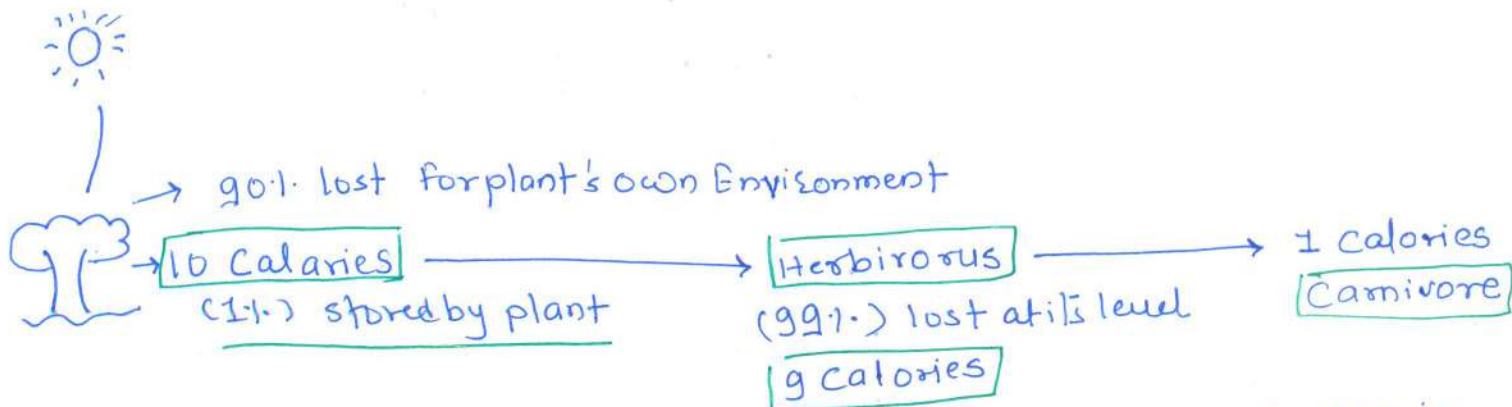 → 90%. lost for plant's own Environment
→ 10 Calaries → Herbirorus → 1 Calories
(1%.) stored by plant (99%.) lost at it's level Carnivore
9 Calories